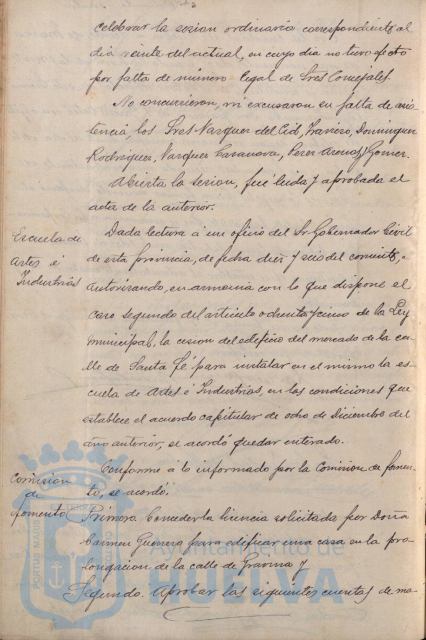 celebrar la sesion ordinaria correspondiente al
dia veinte del actual, en cuyo dia no tuvo efecto
por falta de número legal de Sres Concejales.
No concurrieron, ni excusaron su falta de asis
tencia los Sres Vazquez del Cid, Traviero, Dominguez
Rodriguez, Vazquez Casanova, Perez Arenas y Gomez.
Abierta la sesion, fué leida y aprobada el
acta de la anterior.
Escuela de
Artes é
Industrias
Dada lectura á un oficio del Sr Gobernador Civil
de esta provincia, de fecha diez y seis del corriente,
autorizando, en armonia con lo que dispone el
caso segundo del articulo ochenta y cinco de la Ley
municipal, la cesion del edificio del mercado de la ca
lle de Santa Fé para instalar en el mismo la es
cuela de Artes é Industrias, en las condiciones que
establece el acuerdo capitular de ocho de Diciembre del
año anterior, se acordó quedar enterado.
Comision
de
fomento
Conforme a lo informado por la Comision de fomen
to, se acordó:
Primero. Conceder la licencia solicitada por Doña
Carmen Guerrero para edificar una casa en la pro
longacion de la calle de Gravina y
Segundo. Aprobar las siguientes cuentas de ma-
PORTUS MARIS
Ayuntamiento de
HUELVA